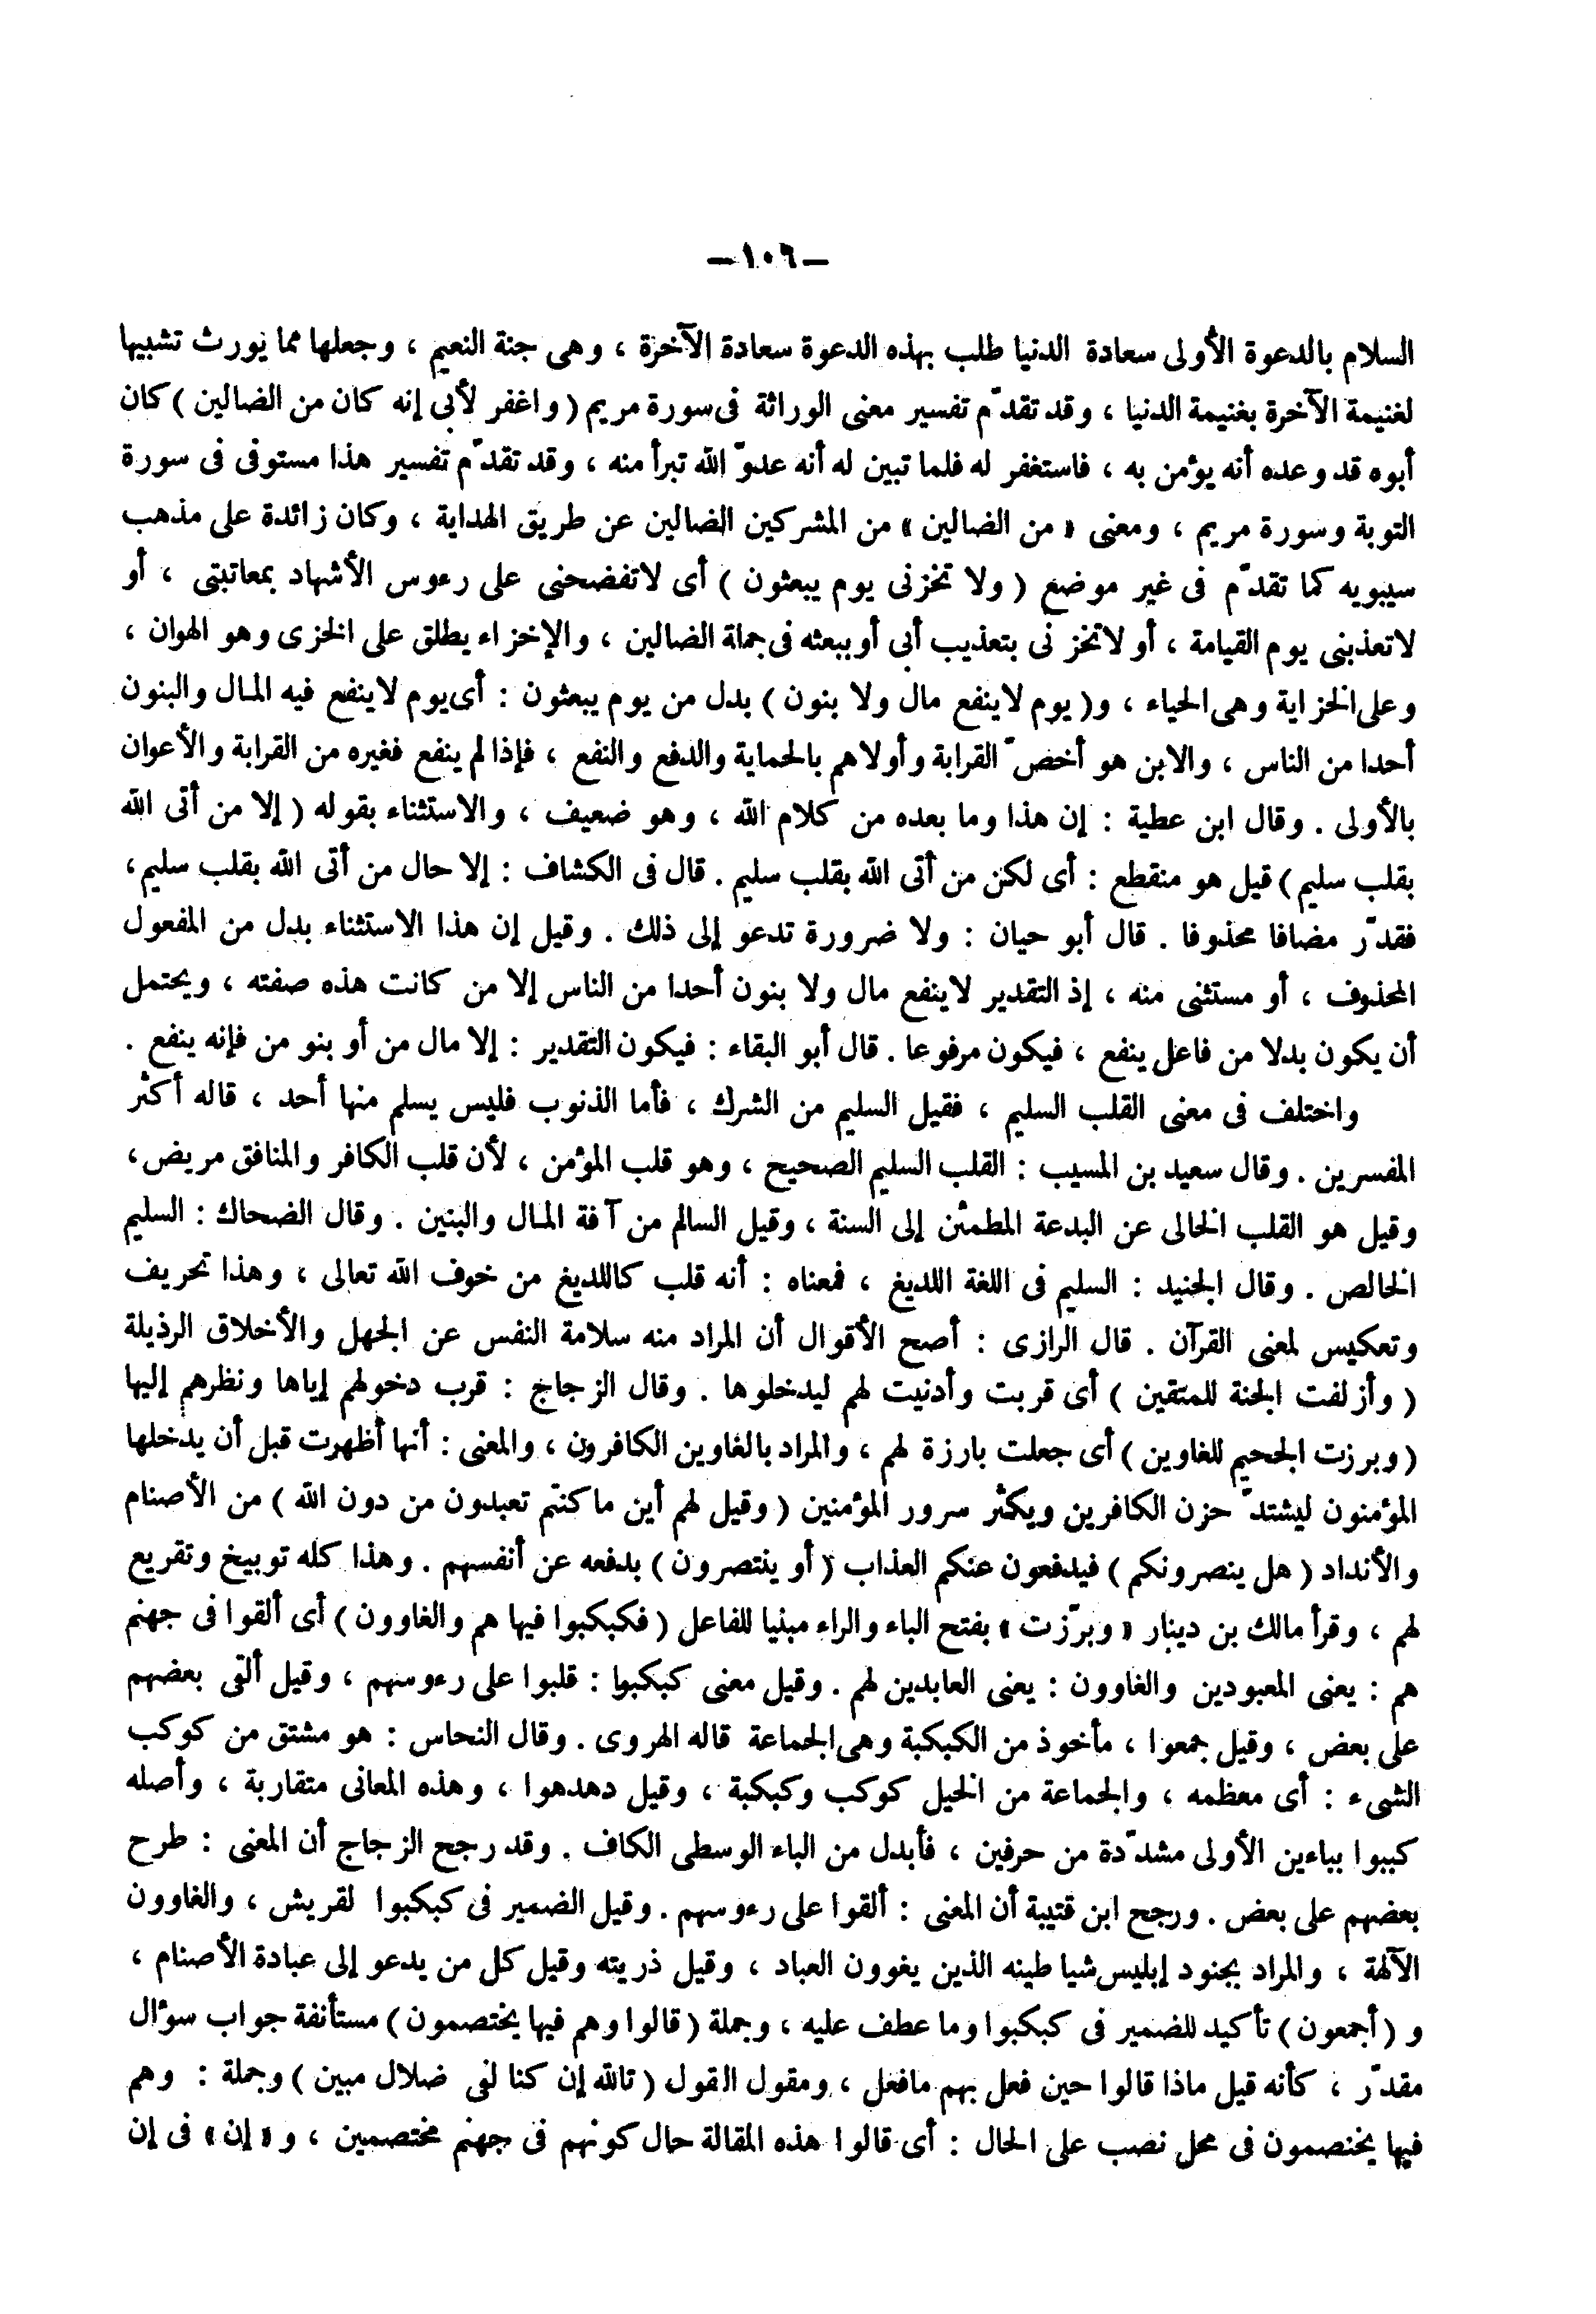 –١٠٦–
السلام بالدعوة الأولى سعادة الدنيا طلب بهذه الدعوة سعادة الآخرة ، وهى جنة النعيم ، وجعلها مما يورث تشبيها
لغنيمة الآخرة بغنيمة الدنيا ، وقد تقدّم تفسير معنى الوراثة فى سورة مريم ( واغفر لأبى إنه كان من الضالين ) كان
أبوه قد وعده أنه يؤمن به ، فاستغفر له فلما تبين له أنه عدوّ الله تبرأ منه ، وقد تقدّم تفسير هذا مستوفى فى سورة
التوبة وسورة مريم ، ومعنى « من الضالين » من المشركين الضالين عن طريق الهداية ، وكان زائدة على مذهب
سيبويه كما تقدّم فى غير موضع ( ولا تخزنى يوم يبعثون ) أى لاتفضحنى على رءوس الأشهاد بمعاتبتى ، أو
لاتعذبنى يوم القيامة ، أو لاتخزنى بتعذيب أبى أو ببعثه فى جملة الضالين ، والإخزاء يطلق على الخزى وهو الهوان ،
وعلى الخزاية وهى الحياء ، و( يوم لاينفع مال ولا بنون ) بدل من يوم يبعثون : أى يوم لاينفع فيه المال والبنون
أحدا من الناس ، والابن هو أخصّ القرابة وأولاهم بالحماية والدفع والنفع ، فإذا لم ينفع فغيره من القرابة والأعوان
بالأولى . وقال ابن عطية : إن هذا وما بعده من كلام الله ، وهو ضعيف ، والاستثناء بقوله ( إلا من أتى الله
بقلب سليم ) قيل هو منقطع : أى لكن من أتى الله بقلب سليم . قال فى الكشاف : إلا حال من أتى الله بقلب سليم ،
فقدّر مضافا محذوفا . قال أبو حيان : ولا ضرورة تدعو إلى ذلك . وقيل إن هذا الاستثناء بدل من المفعول
المحذوف ، أو مستثنى منه ، إذ التقدير لاينفع مال ولا بنون أحدا من الناس إلا من كانت هذه صفته ، ويحتمل
أن يكون بدلا من فاعل ينفع ، فيكون مرفوعا . قال أبو البقاء : فيكون التقدير : إلا مال من أو بنو من فإنه ينفع .
واختلف فى معنى القلب السليم ، فقيل السليم من الشرك ، فأما الذنوب فليس يسلم منها أحد ، قاله أكثر
المفسرين . وقال سعيد بن المسيب : القلب السليم الصحيح ، وهو قلب المؤمن ، لأن قلب الكافر والمنافق مريض ،
وقيل هو القلب الخالى عن البدعة المطمئن إلى السنة ، وقيل السالم من آفة المال والبنين . وقال الضحاك : السليم
الخالص . وقال الجنيد : السليم فى اللغة اللديغ ، فمعناه : أنه قلب كاللديغ من خوف الله تعالى ، وهذا تحريف
وتعكيس لمعنى القرآن . قال الرازى : أصح الأقوال أن المراد منه سلامة النفس عن الجهل والأخلاق الرذيلة
( وأزلفت الجنة للمتقين ) أى قربت وأدنيت لهم ليدخلوها . وقال الزجاج : قرب دخولهم إياها ونظرهم إليها
( وبرزت الجحيم للغاوين ) أى جعلت بارزة لهم ، والمراد بالغاوين الكافرون ، والمعنى : أنها أظهرت قبل أن يدخلها
المؤمنون ليشتدّ حزن الكافرين ويكثر سرور المؤمنين ( وقيل لهم أين ماكنتم تعبدون من دون الله ) من الأصنام
والأنداد ( هل ينصرونكم ) فيدفعون عنكم العذاب ( أو ينتصرون ) بدفعه عن أنفسهم . وهذا كله توبيخ وتقريع
لهم ، وقرأ مالك بن دينار « وبرّزت » بفتح الباء والراء مبنيا للفاعل ( فكبكبوا فيها هم والغاوون ) أى ألقوا فى جهنم
هم : يعنى المعبودين والغاوون : يعنى العابدين لهم . وقيل معنى كبكبوا : قلبوا على رءوسهم ، وقيل ألقى بعضهم
على بعض ، وقيل جمعوا ، مأخوذ من الكبكبة وهى الجماعة قاله الهروى . وقال النحاس : هو مشتق من كوكب
الشىء : أى معظمه ، والجماعة من الخيل كوكب وكبكبة ، وقيل دهدهوا ، وهذه المعانى متقاربة ، وأصله
كببوا بباءين الأولى مشدّدة من حرفين ، فأبدل من الباء الوسطى الكاف . وقد رجح الزجاج أن المعنى : طرح
بعضهم على بعض . ورجح ابن قتيبة أن المعنى : ألقوا على رءوسهم . وقيل الضمير فى كبكبوا لقريش ، والغاوون
الآلهة ، والمراد بجنود إبليس شياطينه الذين يغوون العباد ، وقيل ذريته وقيل كل من يدعو إلى عبادة الأصنام ،
و ( أجمعون ) تأكيد للضمير فى كبكبوا وما عطف عليه ، وجملة ( قالوا وهم فيها يختصمون ) مستأنفة جواب سؤال
مقدّر ، كأنه قيل ماذا قالوا حين فعل بهم مافعل ، ومقول القول ( تالله إن كنا لفى ضلال مبين ) وجملة : وهم
فيها يختصمون فى محل نصب على الحال : أى قالوا هذه المقالة حال كونهم فى جهنم مختصمين ، و « إن » فى إن